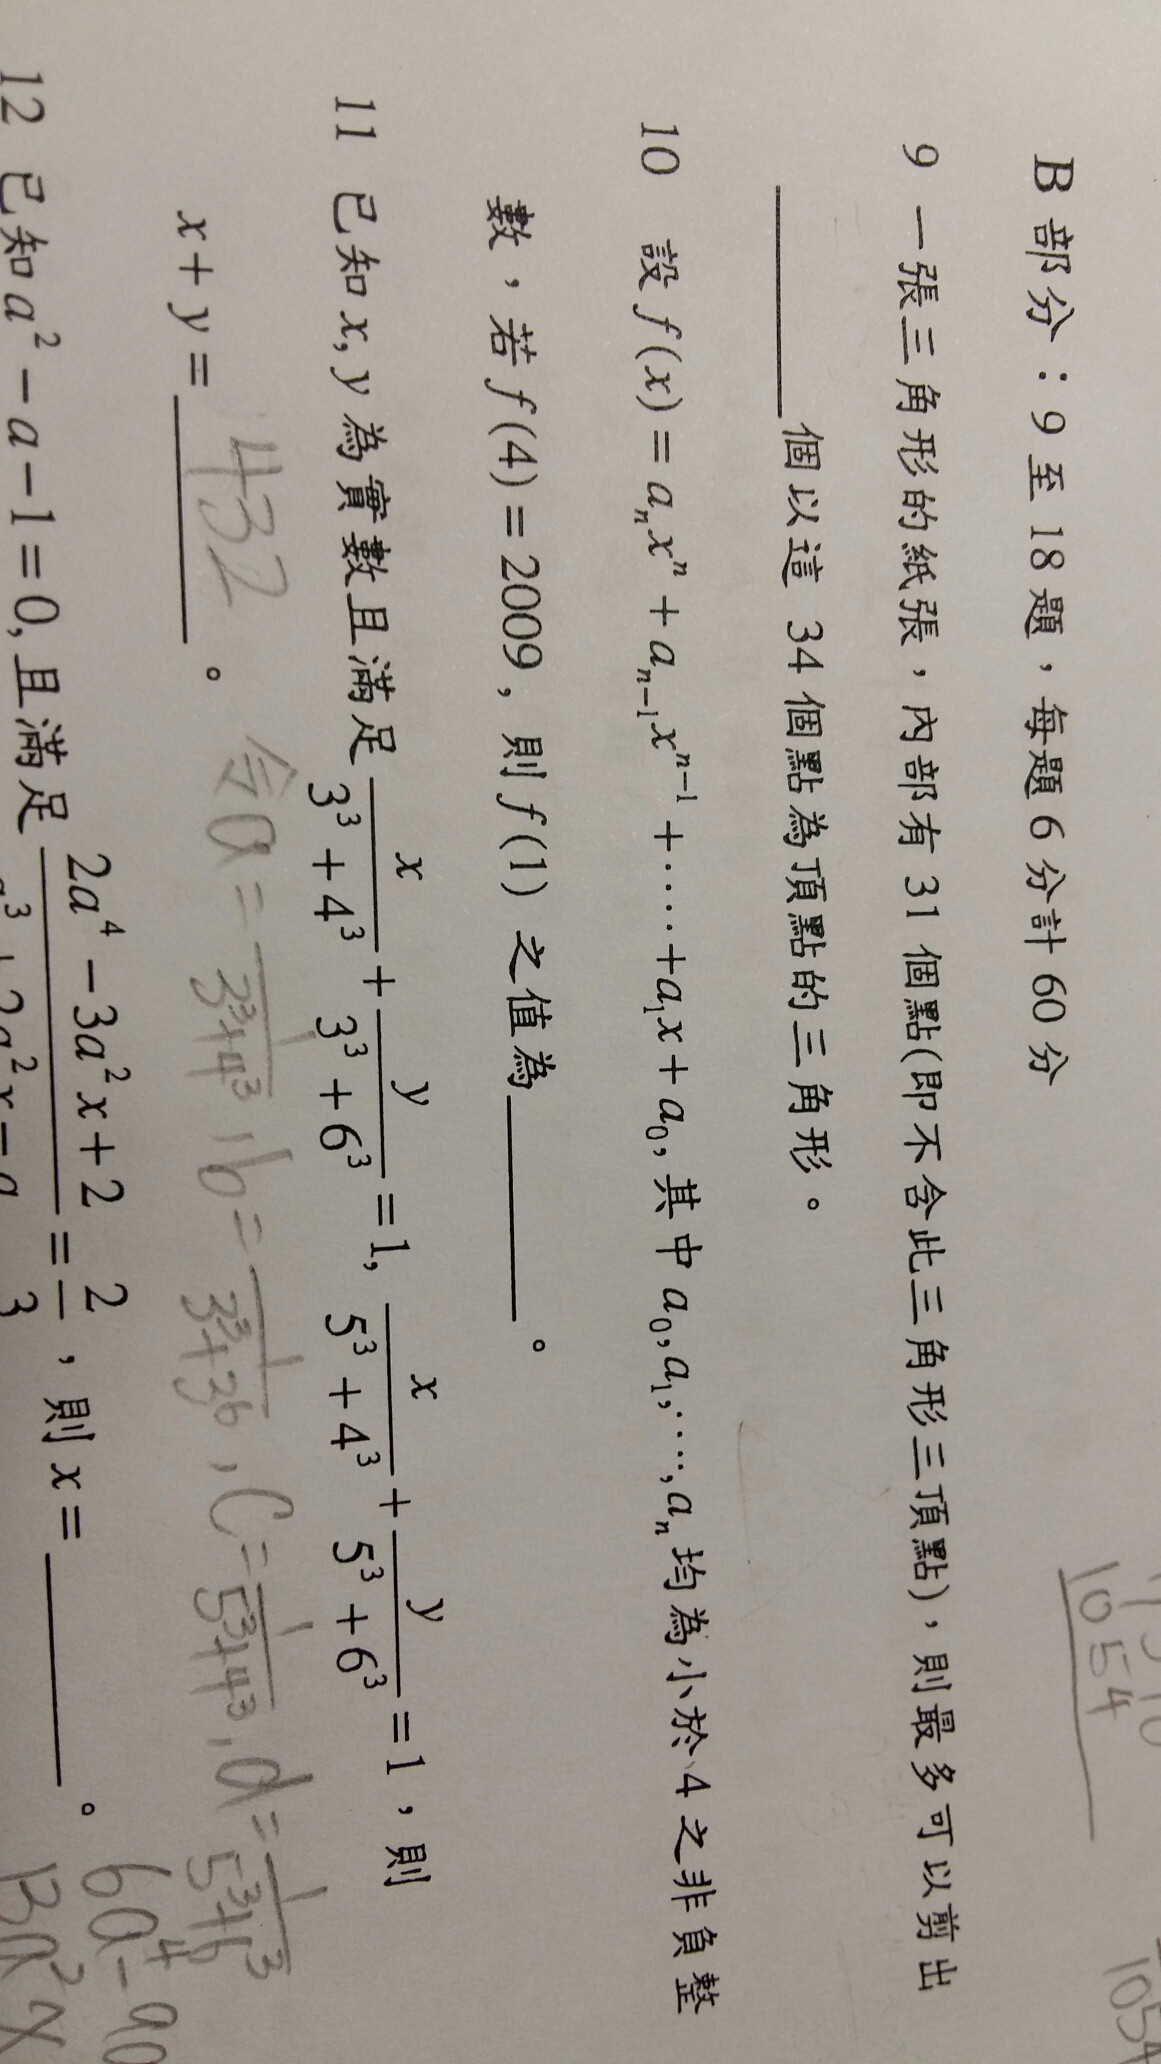 B 部分：9 至 18 題，每題 6 分計 60 分
9 一張三角形的紙張，內部有 31 個點(即不含此三角形三頂點)，則最多可以剪出
________個以這 34 個點為頂點的三角形。
10 設 f(x) = aₙxⁿ + aₙ₋₁xⁿ⁻¹ + ⋯⋯ + a₁x + a₀, 其中 a₀, a₁, ⋯, aₙ 均為小於 4 之非負整
數，若 f(4) = 2009，則 f(1) 之值為________。
11 已知 x, y 為實數且滿足 x/(3³ + 4³) + y/(3³ + 6³) = 1, x/(5³ + 4³) + y/(5³ + 6³) = 1，則
x + y = ________。 432
令 a = 1/(3³+4³), b = 1/(3³+36), C = 1/(5³+4³), d = 1/(5³+6³)
12 已知 a² − a − 1 = 0, 且滿足 (2a⁴ − 3a²x + 2)/(a³ + 2a²x − a) = 2/3，則 x = ________。
6a⁴ −
1054